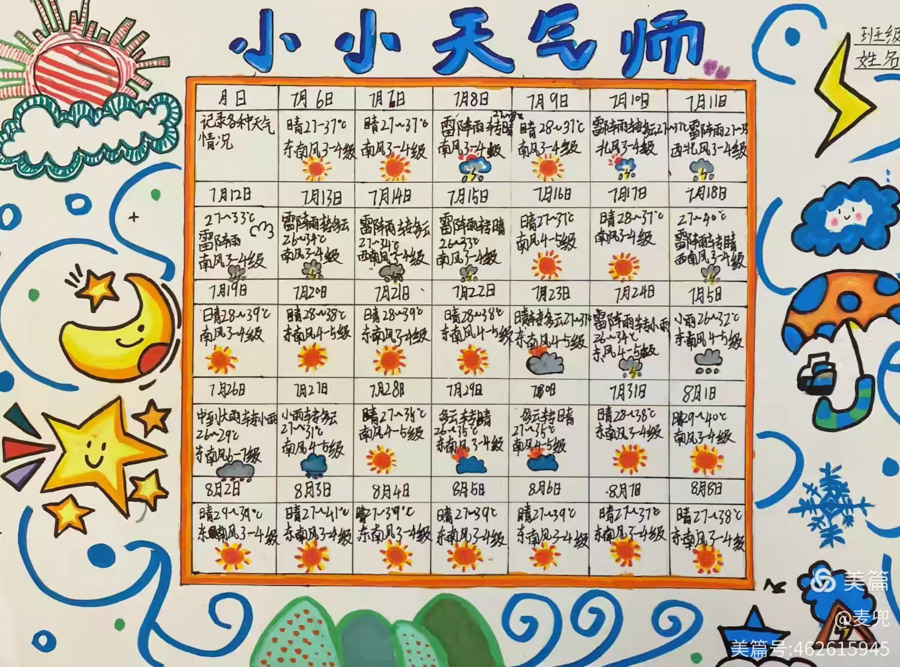 小小天气师
班级
姓名
月日 7月6日 7月7日 7月8日 7月9日 7月10日 7月11日
记录各种天气 晴27-37℃ 晴27~37℃ 雷阵雨转晴 晴28~37℃ 雷阵雨转多云 雷阵雨
情况 东南风3-4级 南风3-4级 南风3-4级 南风3-4级 北风3-4级 西北风3-4级
7月12日 7月13日 7月14日 7月15日 7月16日 7月17日 7月18日
27~33℃ 雷阵雨转多云 雷阵雨转多云 雷阵雨转晴 晴27~37℃ 晴28~37℃ 27~40℃
雷阵雨 26~34℃ 27~34℃ 26~33℃ 南风4-5级 南风3-4级 雷阵雨转晴
南风3-4级 南风3-4级 西南风3-4级 南风3-4级 西南风3-4级
7月19日 7月20日 7月21日 7月22日 7月23日 7月24日 7月5日
晴28~39℃ 晴28~38℃ 晴28~39℃ 晴28~38℃ 晴转多云27~37 雷阵雨转小雨 小雨26~32℃
南风3-4级 东南风4-5级 东南风3-4级 东南风4-5级 东南风4-5级 26~34℃ 东南风4-5级
东风4-5级
7月26日 7月27日 7月28日 7月29日 7月31日 8月1日
小雨转多云 晴27~34℃ 多云转晴 多云转晴 晴28~38℃
26~29℃ 27~31℃ 南风4-5级 26~35℃ 27~35℃ 东南风3-4级 南风3-4级
东南风6-7级 南风4-5级 东南风3-4级 南风4-5级
8月2日 8月3日 8月4日 8月5日 8月6日 8月7日 8月8日
晴29~39℃ 晴27~41℃ 晴27~39℃ 晴27~39℃ 晴27~39℃ 晴27~37℃ 晴27~38℃
东南风3-4级 东南风3-4级 东南风3-4级 东南风3-4级 东南风3-4级 东南风3-4级 东南风3-4级
美篇
@麦兜
美篇号:462615945